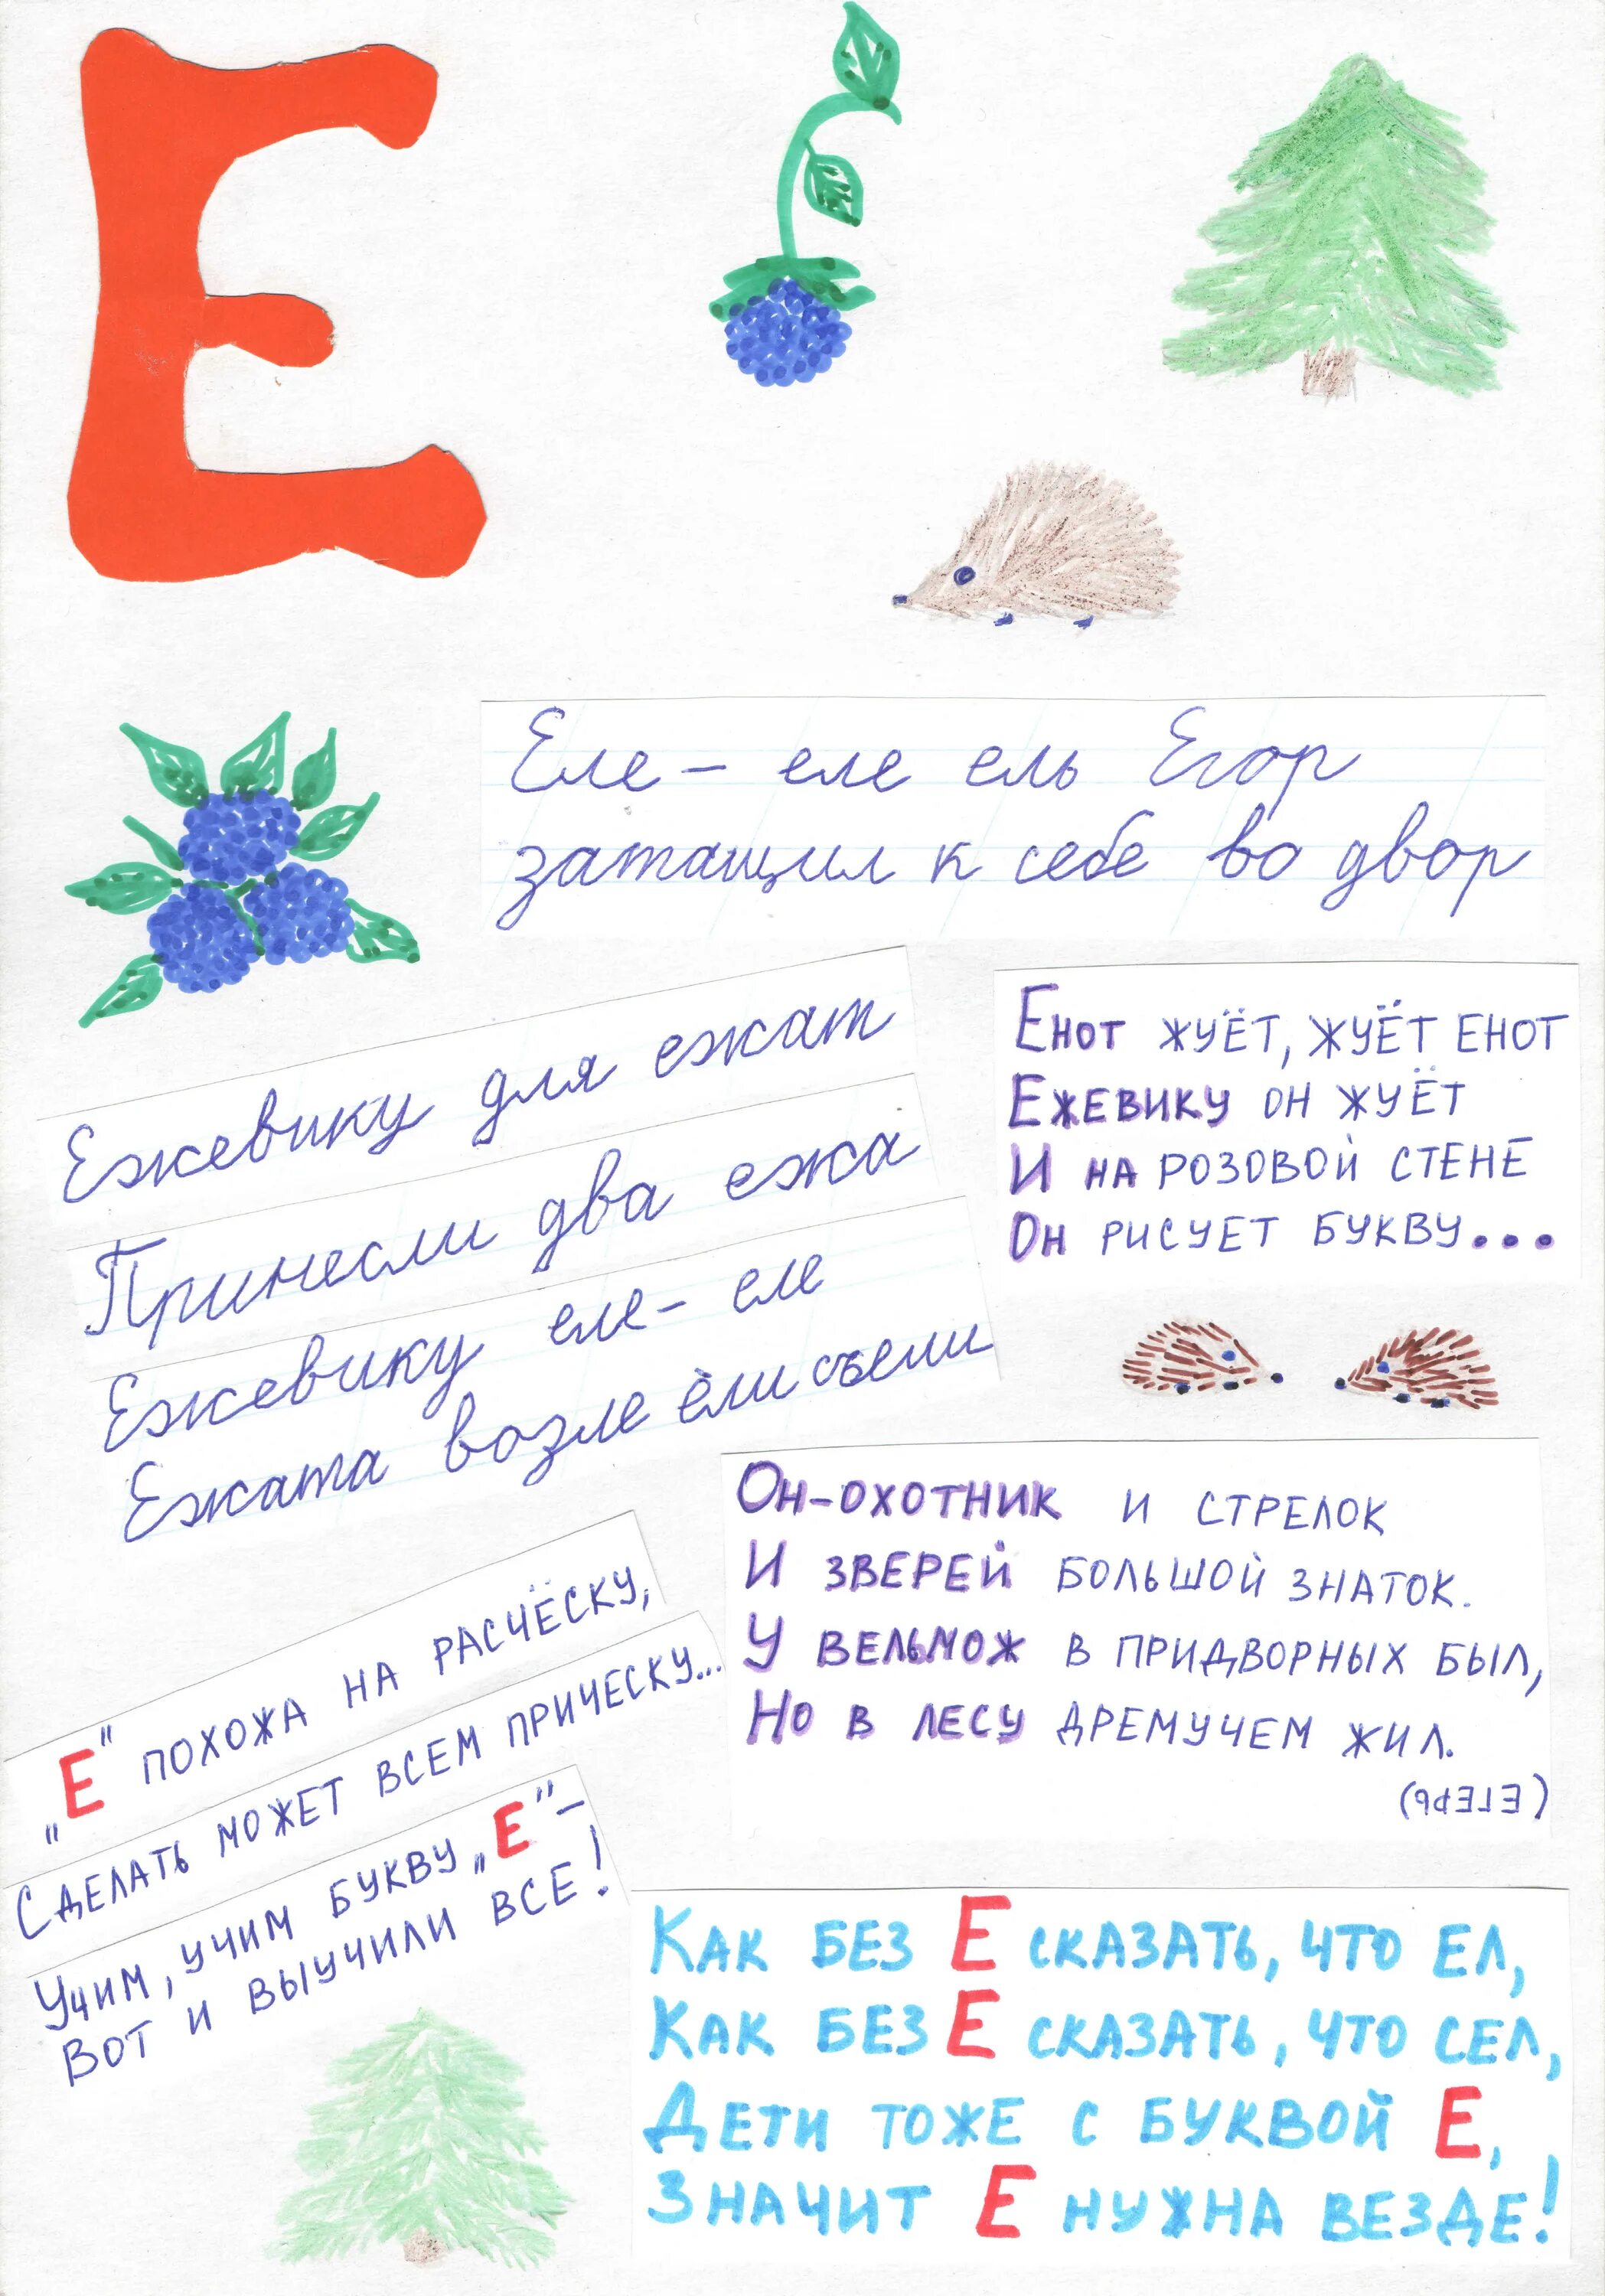 Е
Еле – еле ель Егор
затащил к себе во двор
Ежевику для ежат
Принесли два ежа
Ежевику еле – еле
Ежата возле ели съели
Енот жуёт, жуёт енот
Ежевику он жуёт
И на розовой стене
Он рисует букву...
Он-охотник и стрелок
И зверей большой знаток.
У вельмож в придворных был,
Но в лесу дремучем жил.
(егерь)
„Е" похожа на расчёску,
Сделать может всем прическу...
Учим, учим букву „Е"–
Вот и выучили все!
Как без Е сказать, что ел,
Как без Е сказать, что сел,
Дети тоже с буквой Е,
Значит Е нужна везде!